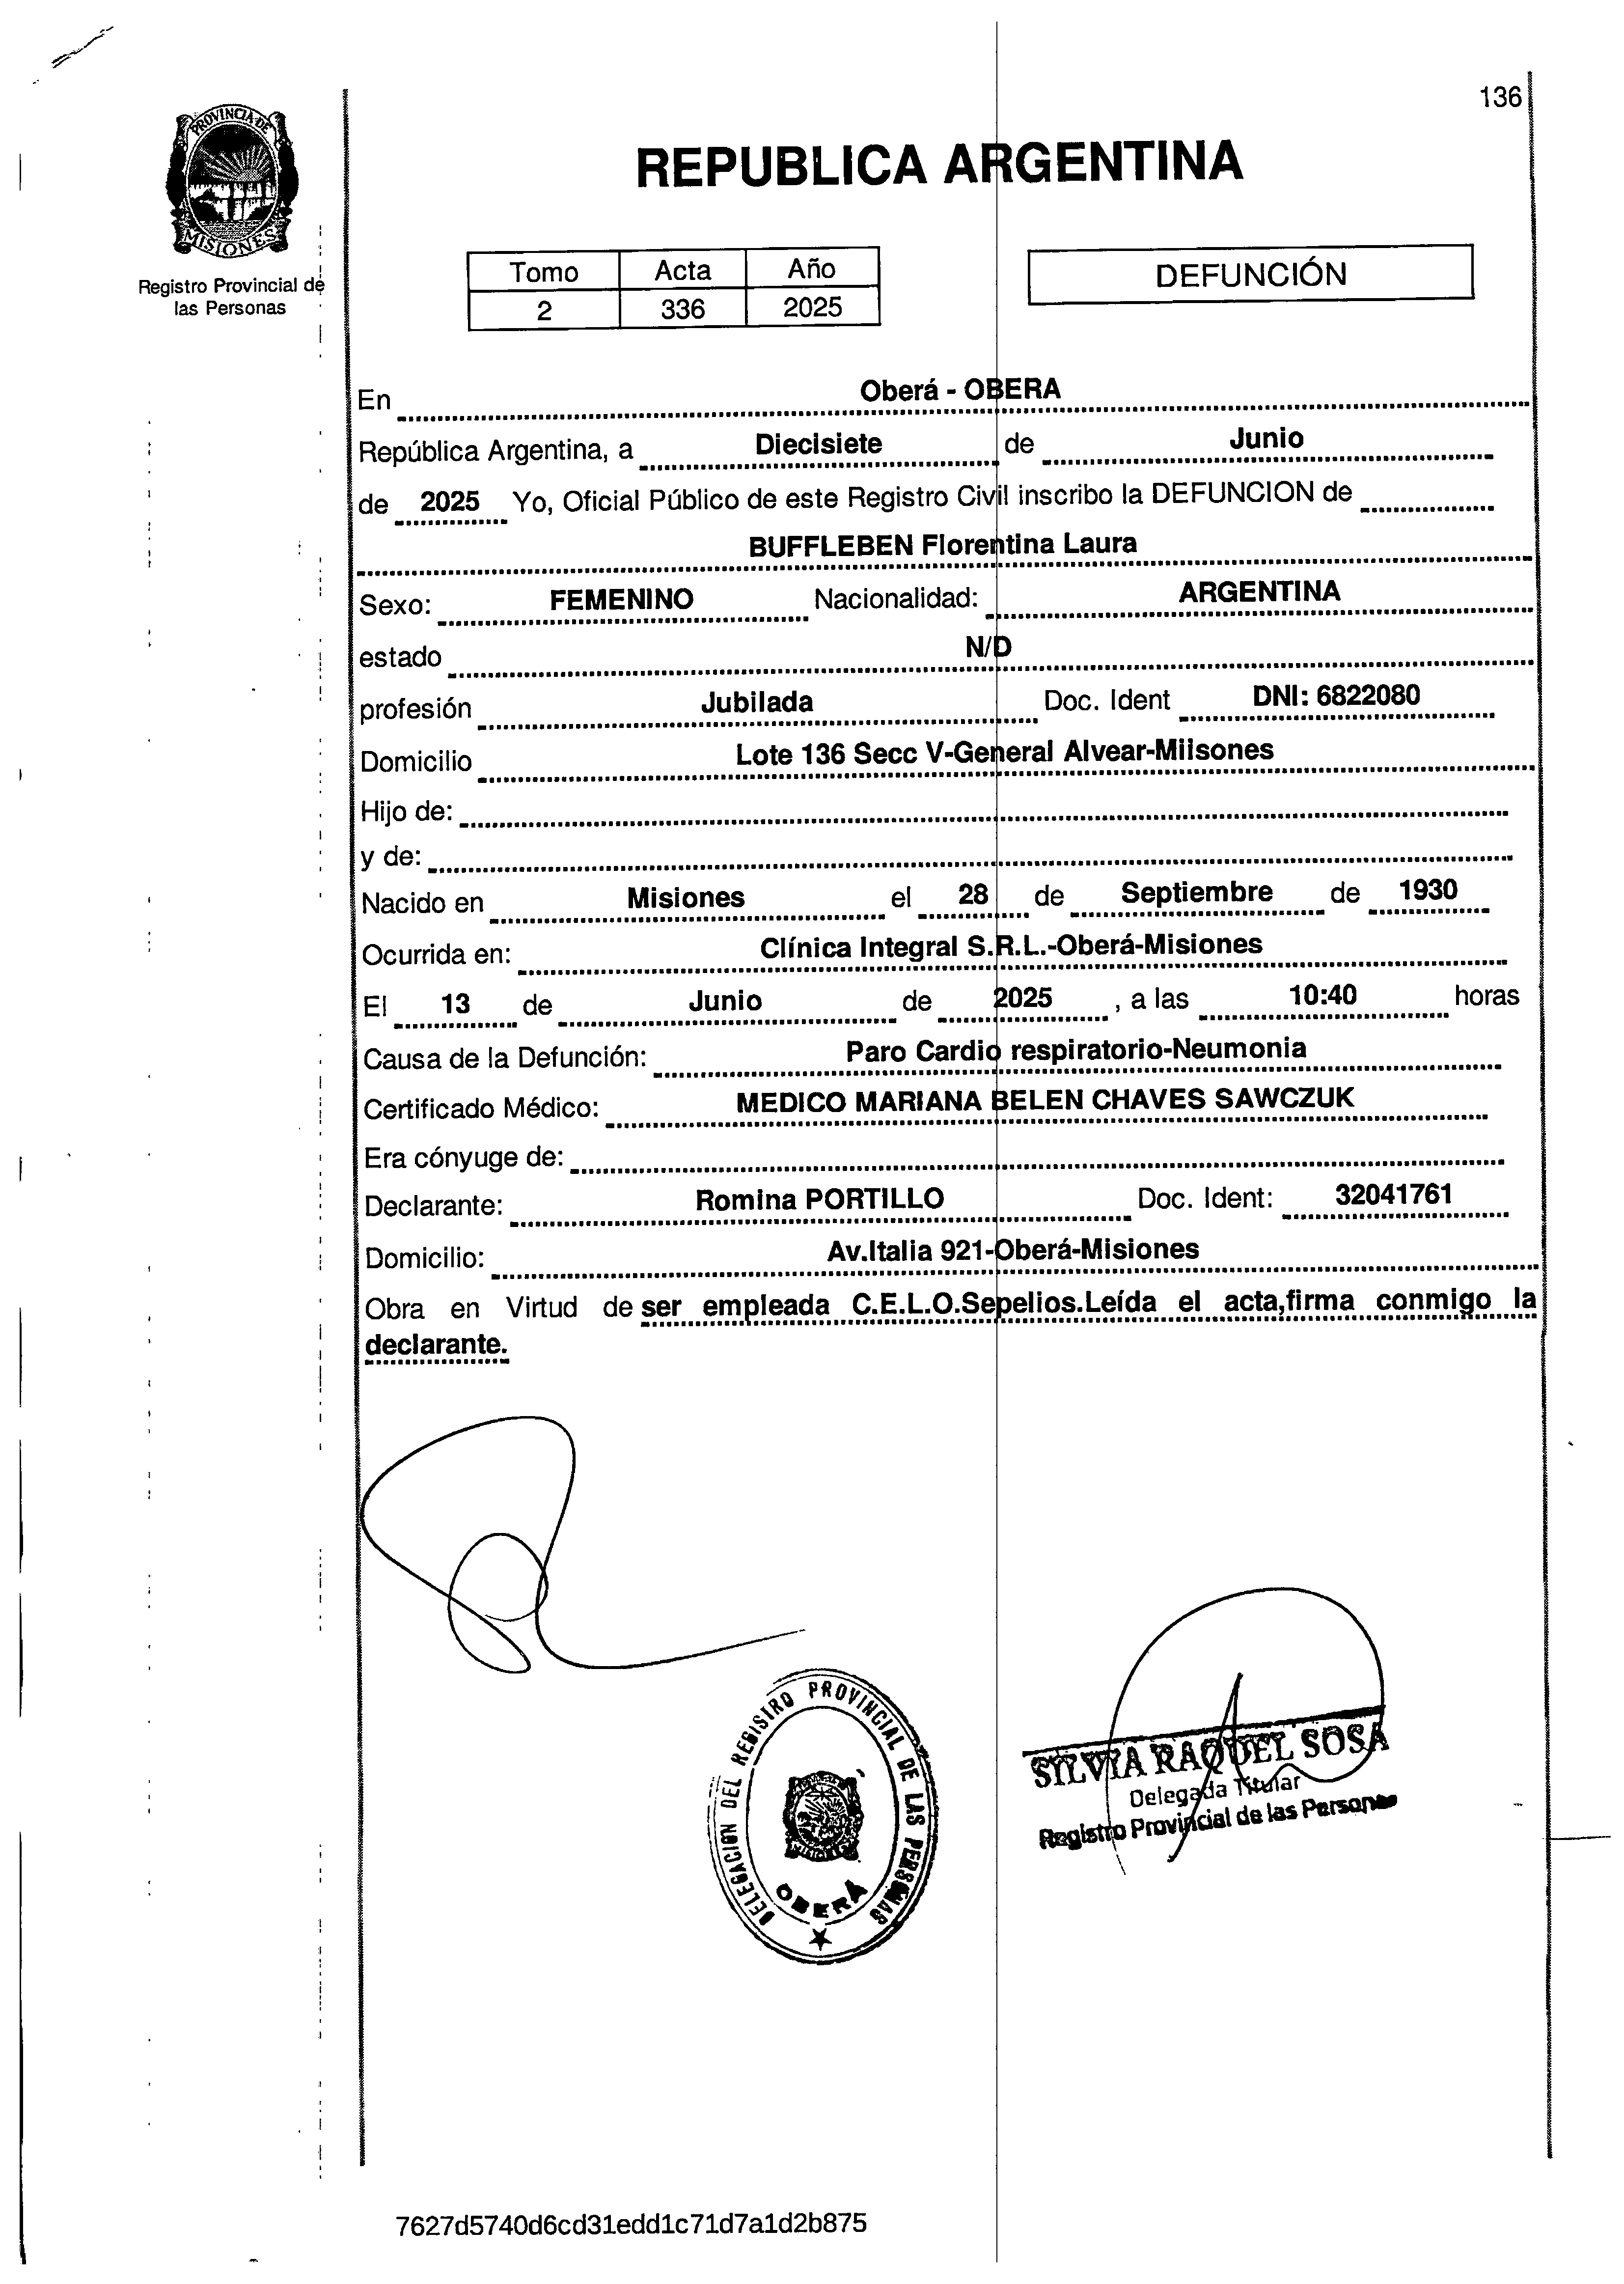 136
PROVINCIA DE
MISIONES
Registro Provincial de
las Personas
REPUBLICA ARGENTINA
Tomo Acta Año
2 336 2025
DEFUNCIÓN
En Oberá - OBERA
República Argentina, a Diecisiete de Junio
de 2025 Yo, Oficial Público de este Registro Civil inscribo la DEFUNCION de
BUFFLEBEN Florentina Laura
Sexo: FEMENINO Nacionalidad: ARGENTINA
estado N/D
profesión Jubilada Doc. Ident DNI: 6822080
Domicilio Lote 136 Secc V-General Alvear-Miisones
Hijo de:
y de:
Nacido en Misiones el 28 de Septiembre de 1930
Ocurrida en: Clínica Integral S.R.L.-Oberá-Misiones
El 13 de Junio de 2025 , a las 10:40 horas
Causa de la Defunción: Paro Cardio respiratorio-Neumonia
Certificado Médico: MEDICO MARIANA BELEN CHAVES SAWCZUK
Era cónyuge de:
Declarante: Romina PORTILLO Doc. Ident: 32041761
Domicilio: Av.Italia 921-Oberá-Misiones
Obra en Virtud de ser empleada C.E.L.O.Sepelios.Leída el acta,firma conmigo la
declarante.
DELEGACION DEL REGISTRO PROVINCIAL DE LAS PERSONAS
OBERÁ
SILVIA RAQUEL SOSA
Delegada Titular
Registro Provincial de las Personas
7627d5740d6cd31edd1c71d7a1d2b875